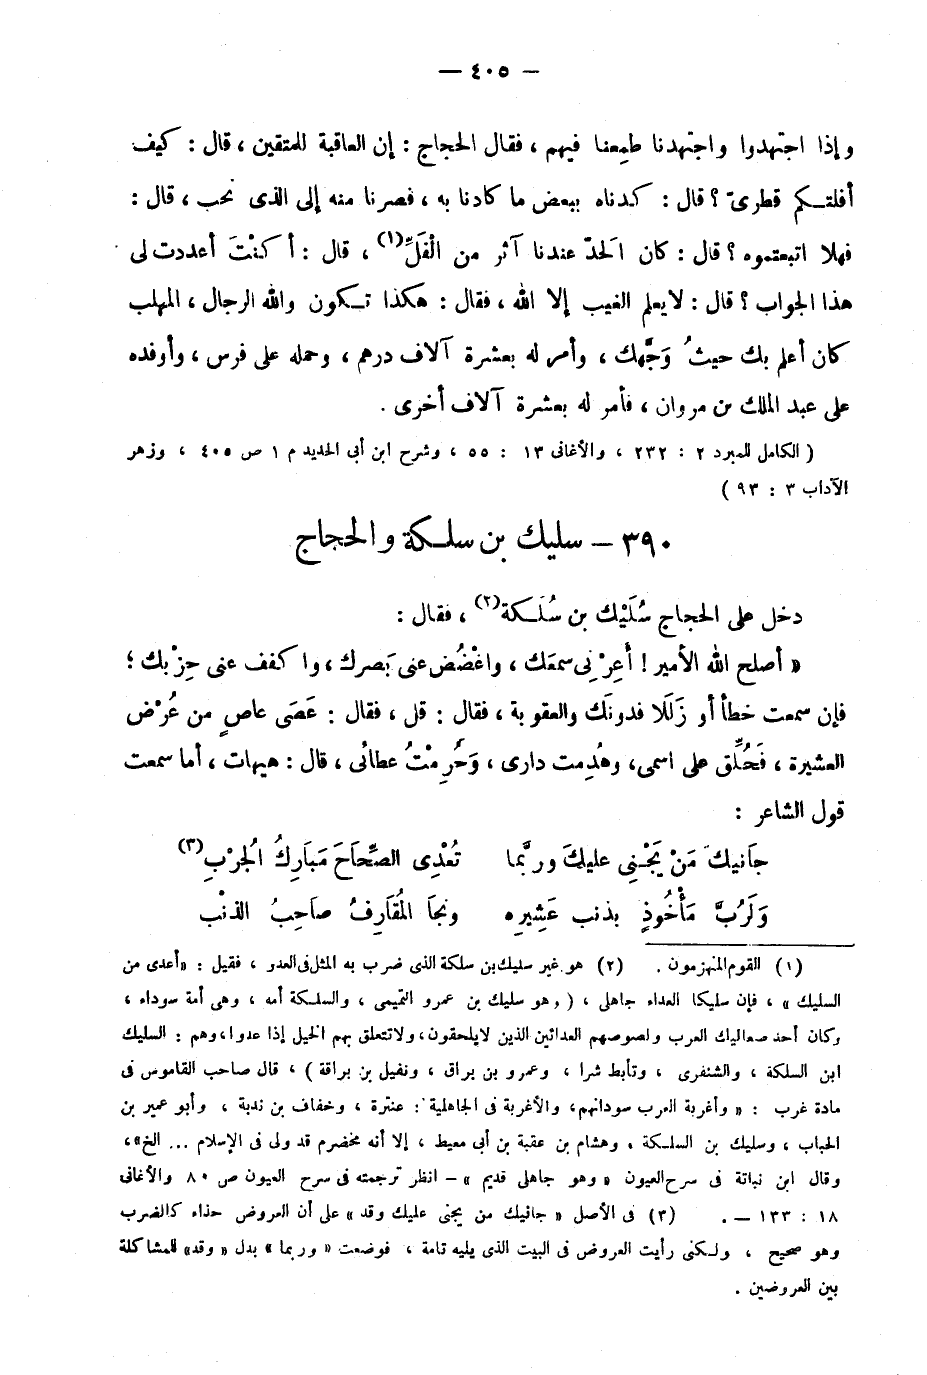 — ٤٠٥ —
وإذا اجتهدوا واجتهدنا طمِعنا فيهم ، فقال الحجاج : إن العاقبة للمتقين ، قال : كيف
أفلتكم قطرىّ ؟ قال : كدناه ببعض ما كادنا به ، فصرنا منه إلى الذى نحب ، قال :
فهلا اتبعتموه ؟ قال : كان الحدّ عندنا آثر من الْفَلِّ(١) ، قال : أكنْتَ أعددت لى
هذا الجواب ؟ قال : لا يعلم الغيب إلا الله ، فقال : هكذا تكون والله الرجال ، المهلب
كان أعلم بك حيثُ وَجَّهك ، وأمر له بعشرة آلاف درهم ، وحمله على فرس ، وأوفده
على عبد الملك بن مروان ، فأمر له بعشرة آلاف أخرى .
( الكامل للمبرد ٢ : ٢٣٢ ، والأغانى ١٣ : ٥٥ ، وشرح ابن أبى الحديد م ١ ص ٤٠٥ ، وزهر
الآداب ٣ : ٩٣ )
٣٩٠ — سليك بن سلكة والحجاج
دخل على الحجاج سُلَيْك بن سُلَكة(٢) ، فقال :
« أصلح الله الأمير ! أَعِرْنى سمعَك ، واغْضُض عنى بَصرك ، واكفف عنى حِزْبك ؛
فإن سمعت خطأ أو زَلَلا فدونَك والعقوبة ، فقال : قل ، فقال : عَصَى عاصٍ من عُرْض
العشيرة ، فَحُلِّق على اسمى، وهُدِمت دارى ، وَحُرِمْتُ عطائى ، قال : هيهات ، أما سمعت
قول الشاعر :
جَانيكَ مَنْ يَجْنِى عليكَ وربَّما تُعْدِى الصِّحَاحَ مَبَارِكُ الْجُرْبِ(٣)
وَلَرُبَّ مَأْخُوذٍ بذنب عَشِيرِه ونجَا الْمُقَارِفُ صَاحِبُ الذنْب
(١) القوم المنهزمون . (٢) هو غير سليك بن سلكة الذى ضرب به المثل فى العدو ، فقيل : «أعدى من
السليك » ، فإن سليكا العداء جاهلى ، ( وهو سليك بن عمرو التميمى ، والسلكة أمه ، وهى أمة سوداء ،
وكان أحد صعاليك العرب ولصوصهم العدائين الذين لا يلحقون، ولا تتعلق بهم الخيل إذا عدوا، وهم : السليك
ابن السلكة ، والشنفرى ، وتأبط شرا ، وعمرو بن براق ، ونفيل بن براقة ) ، قال صاحب القاموس فى
مادة غرب : « وأغربة العرب سودانهم، والأغربة فى الجاهلية : عنترة ، وخفاف بن ندبة ، وأبو عمير بن
الحباب ، وسليك بن السلكة ، وهشام بن عقبة بن أبى معيط ، إلا أنه مخضرم قد ولى فى الإسلام ... الخ»،
وقال ابن نباتة فى سرح العيون « وهو جاهلى قديم » — انظر ترجمته فى سرح العيون ص ٨٠ والأغانى
١٨ : ١٣٣ — . (٣) فى الأصل « جانيك من يجنى عليك وقد » على أن العروض حذاء كالضرب
وهو صحيح ، ولكنى رأيت العروض فى البيت الذى يليه تامة ، فوضعت « وربما » بدل « وقد» للمشاكلة
بين العروضين .